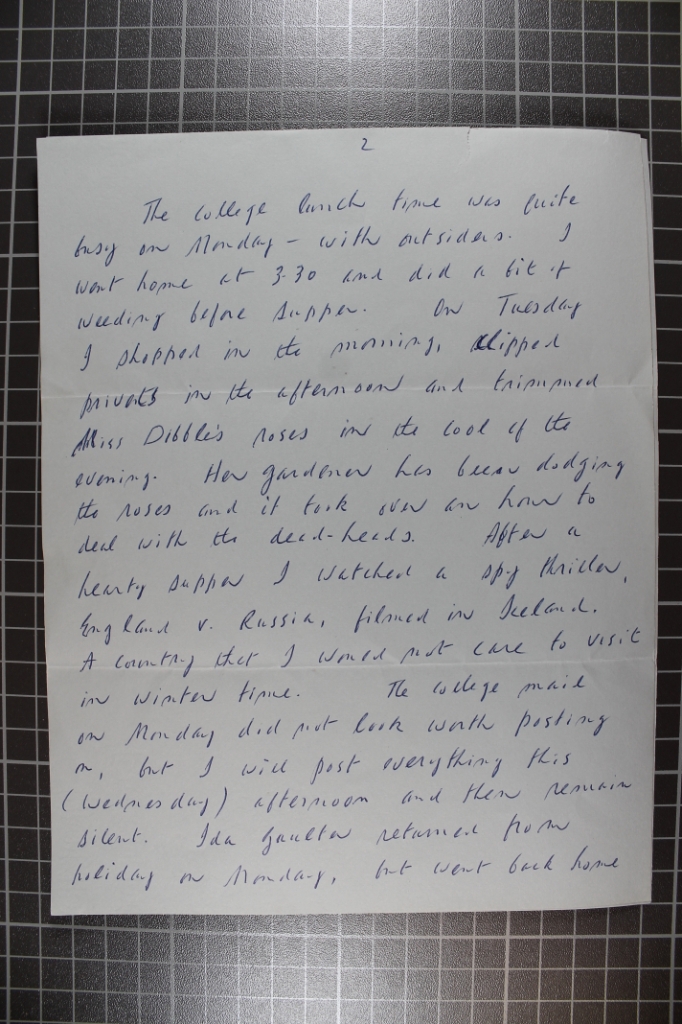 2
The college lunch time was quite
busy on Monday – with outsiders. I
went home at 3.30 and did a bit of
weeding before supper. On Tuesday
I shopped in the morning, clipped
privets in the afternoon and trimmed
Miss Dibble's roses in the cool of the
evening. Her gardener has been dodging
the roses and it took over an hour to
deal with the dead-heads. After a
hearty supper I watched a spy thriller,
England v. Russia, filmed in Iceland.
A country that I would not care to visit
in winter time. The college mail
on Monday did not look worth posting
on, but I will post everything this
(Wednesday) afternoon and then remain
silent. Ida Gaulter returned from
holiday on Monday, but went back home